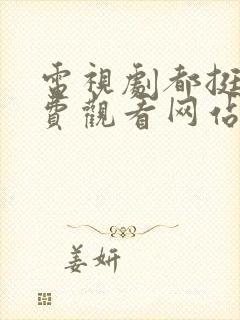 電視劇都挺
費觀看网站
姜妍